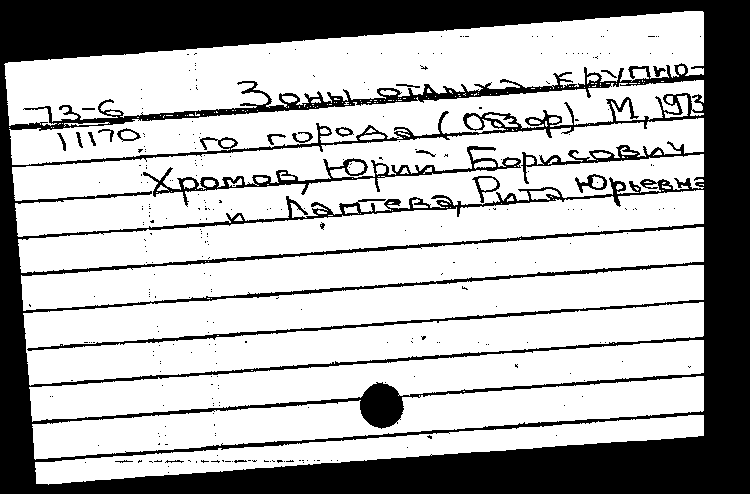 73-6 Зоны отдыха крупно-
11170 го города (Обзор). М, 1973
Хромов, Юрий Борисович
и Лаптева, Рита Юрьевна